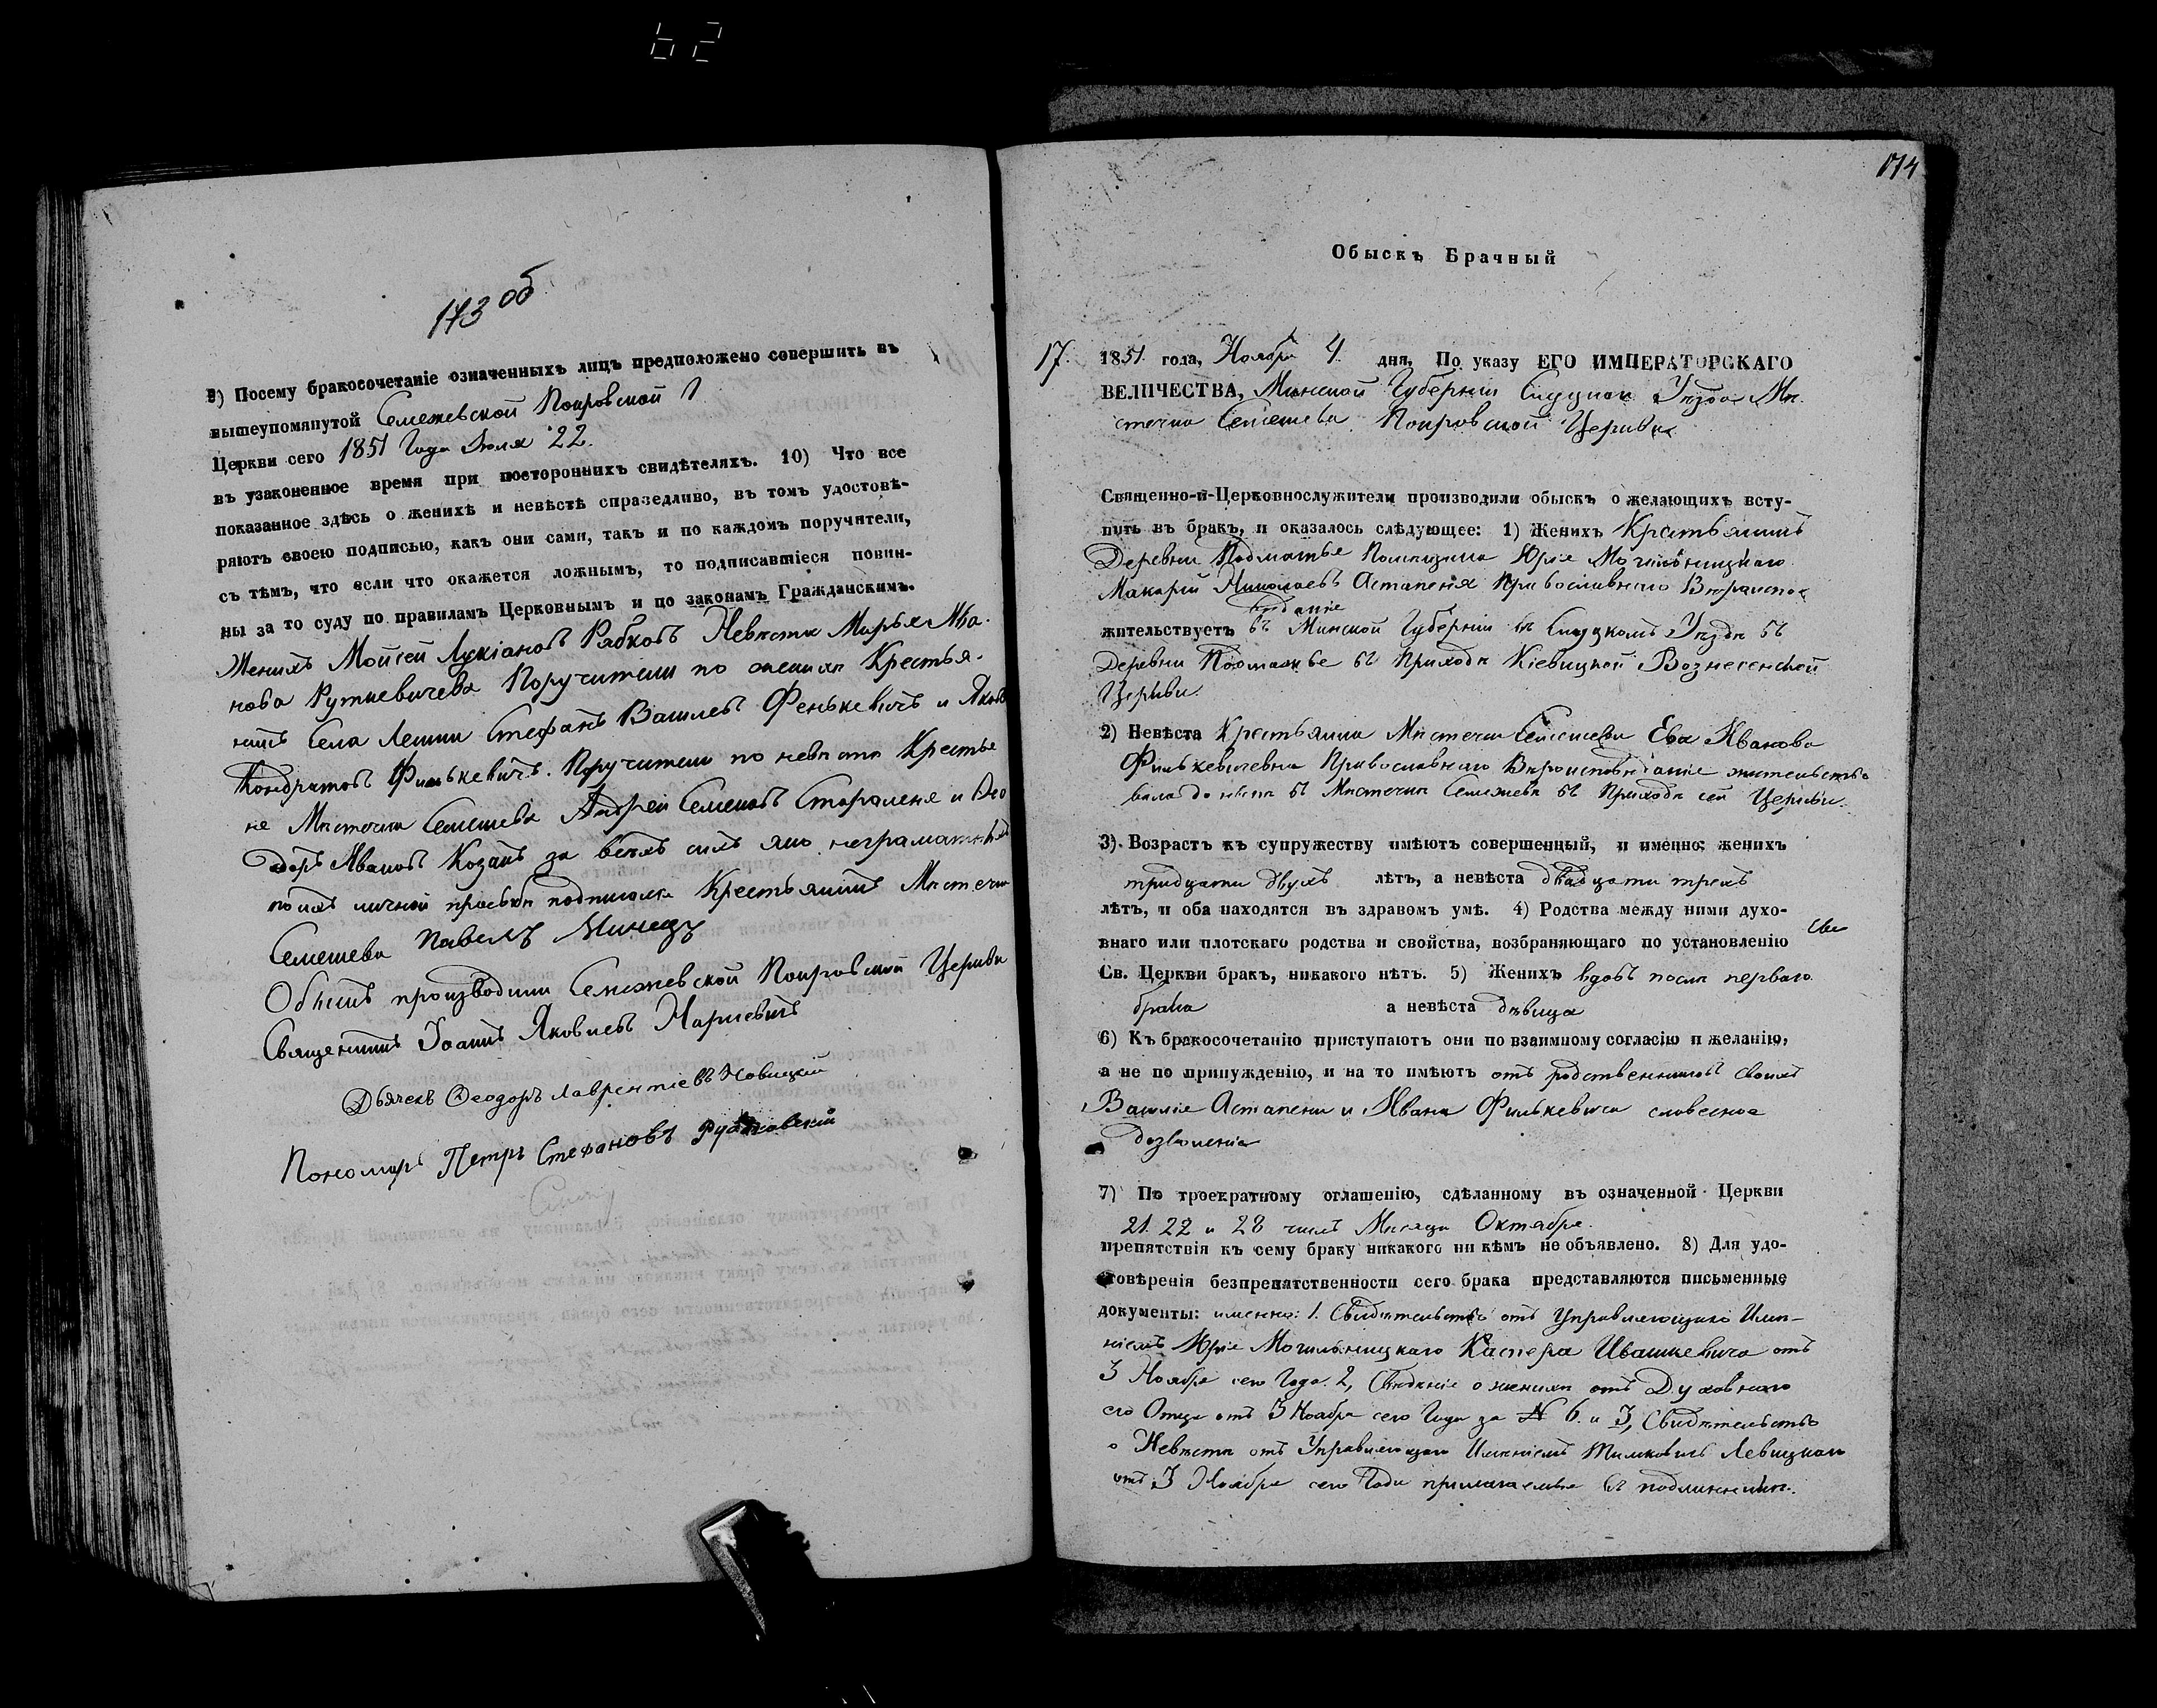 62
173 об
9) Посему бракосочетаніе означенныхъ лицъ предположено совершить въ
вышеупомянутой Семежевской Покровской
Церкви сего 1851 Года Іюля 22.
въ узаконенное время при постороннихъ свидѣтеляхъ. 10) Что все
показанное здѣсь о женихѣ и невѣстѣ справедливо, въ томъ удостовѣ-
ряютъ своею подписью, какъ они сами, такъ и по каждомъ поручители,
съ тѣмъ, что если что окажется ложнымъ, то подписавшіеся повин-
ны за то суду по правиламъ Церковнымъ и по законамъ Гражданскимъ.
Женихъ Мойсей Лукіановъ Рябковъ Невѣста Марья Ива-
нова Руткевичева Поручители по женихѣ Крестья-
нинъ Села Лешни Стефанъ Васильевъ Фенькевичъ и Яковъ
Кондратовъ Филькевичъ. Поручители по невѣстѣ Крестья
не Мѣстечка Семежева Андрей Семеновъ Стараленя и Ѳео
доръ Ивановъ Козакъ за всѣхъ сихъ яко неграматныхъ
по ихъ личной прозьбѣ подписался Крестьянинъ Мѣстечка
Семежева Павелъ Минецъ
Обыскъ производили Семежевской Покровской Церкви
Священникъ Іоаннъ Яковлевъ Маркевичъ
Дьячекъ Ѳеодоръ Лаврентіевъ Новицкій
Пономарь Петръ Стефановъ
174
Обыскъ Брачный
17. 1851 года, Ноября 4 дня, По указу ЕГО ИМПЕРАТОРСКАГО
ВЕЛИЧЕСТВА, Минской Губерніи Слуцкаго Уѣзда Мѣ-
стечка Семежева Покровской Церкви
Священно-и-Церковнослужители производили обыскъ о желающихъ всту-
пить въ бракъ, и оказалось слѣдующее: 1) Женихъ Крестьянинъ
Деревни Помещика Юрія Могильницкаго
Макарій Николаевъ Астапеня Православнаго Вѣроиспо
вѣданіе
жительствуетъ въ Минской Губерніи въ Слуцкомъ Уѣздѣ въ
Деревни въ Приходѣ Кіевицкой Вознесенской
Церкви.
2) Невѣста Крестьянка Мѣстечка Семежева Ева Иванова
Филькевичевна Православнаго Вѣроисповѣданіе жительство
вала до нынѣ въ Мѣстечкѣ Семежевѣ въ Приходѣ сей Церкви.
3) Возрастъ къ супружеству имѣютъ совершенный, и именно: женихъ
тридцати двухъ лѣтъ, а невѣста двадцати трехъ
лѣтъ, и оба находятся въ здравомъ умѣ. 4) Родства между ними духо-
внаго или плотскаго родства и свойства, возбраняющаго по установленію
Св. Церкви бракъ, никакого нѣтъ. 5) Женихъ вдовъ послѣ перваго
брака а невѣста дѣвица
6) Къ бракосочетанію приступаютъ они по взаимному согласію и желанію,
а не по принужденію, и на то имѣютъ отъ родственниковъ своихъ
Василіе Астапени и Ивана Филькевича словесное
дозволеніе
7) По троекратному оглашенію, сдѣланному въ означенной Церкви
21. 22 и 28 числъ Мѣсяца Октября.
препятствія къ сему браку никакого ни кѣмъ не объявлено. 8) Для удо-
стовѣренія безпрепятственности сего брака представляются письменные
документы: именно: 1. Свидѣтельство отъ Управляющаго Имѣ-
ніемъ Юрія Могильницкаго Каспера Ивашкевича отъ
3 Ноября сего Года. 2, Свѣденіе о женихѣ отъ Духовнаго
его Отца отъ 3 Ноября сего Года за № 6. и 3, Свидѣтельство
о Невѣстѣ отъ Управляющаго Имѣніемъ Тимковичъ Левицкаго
отъ 3 Ноября сего Года прилагаемые въ подлинникѣ.